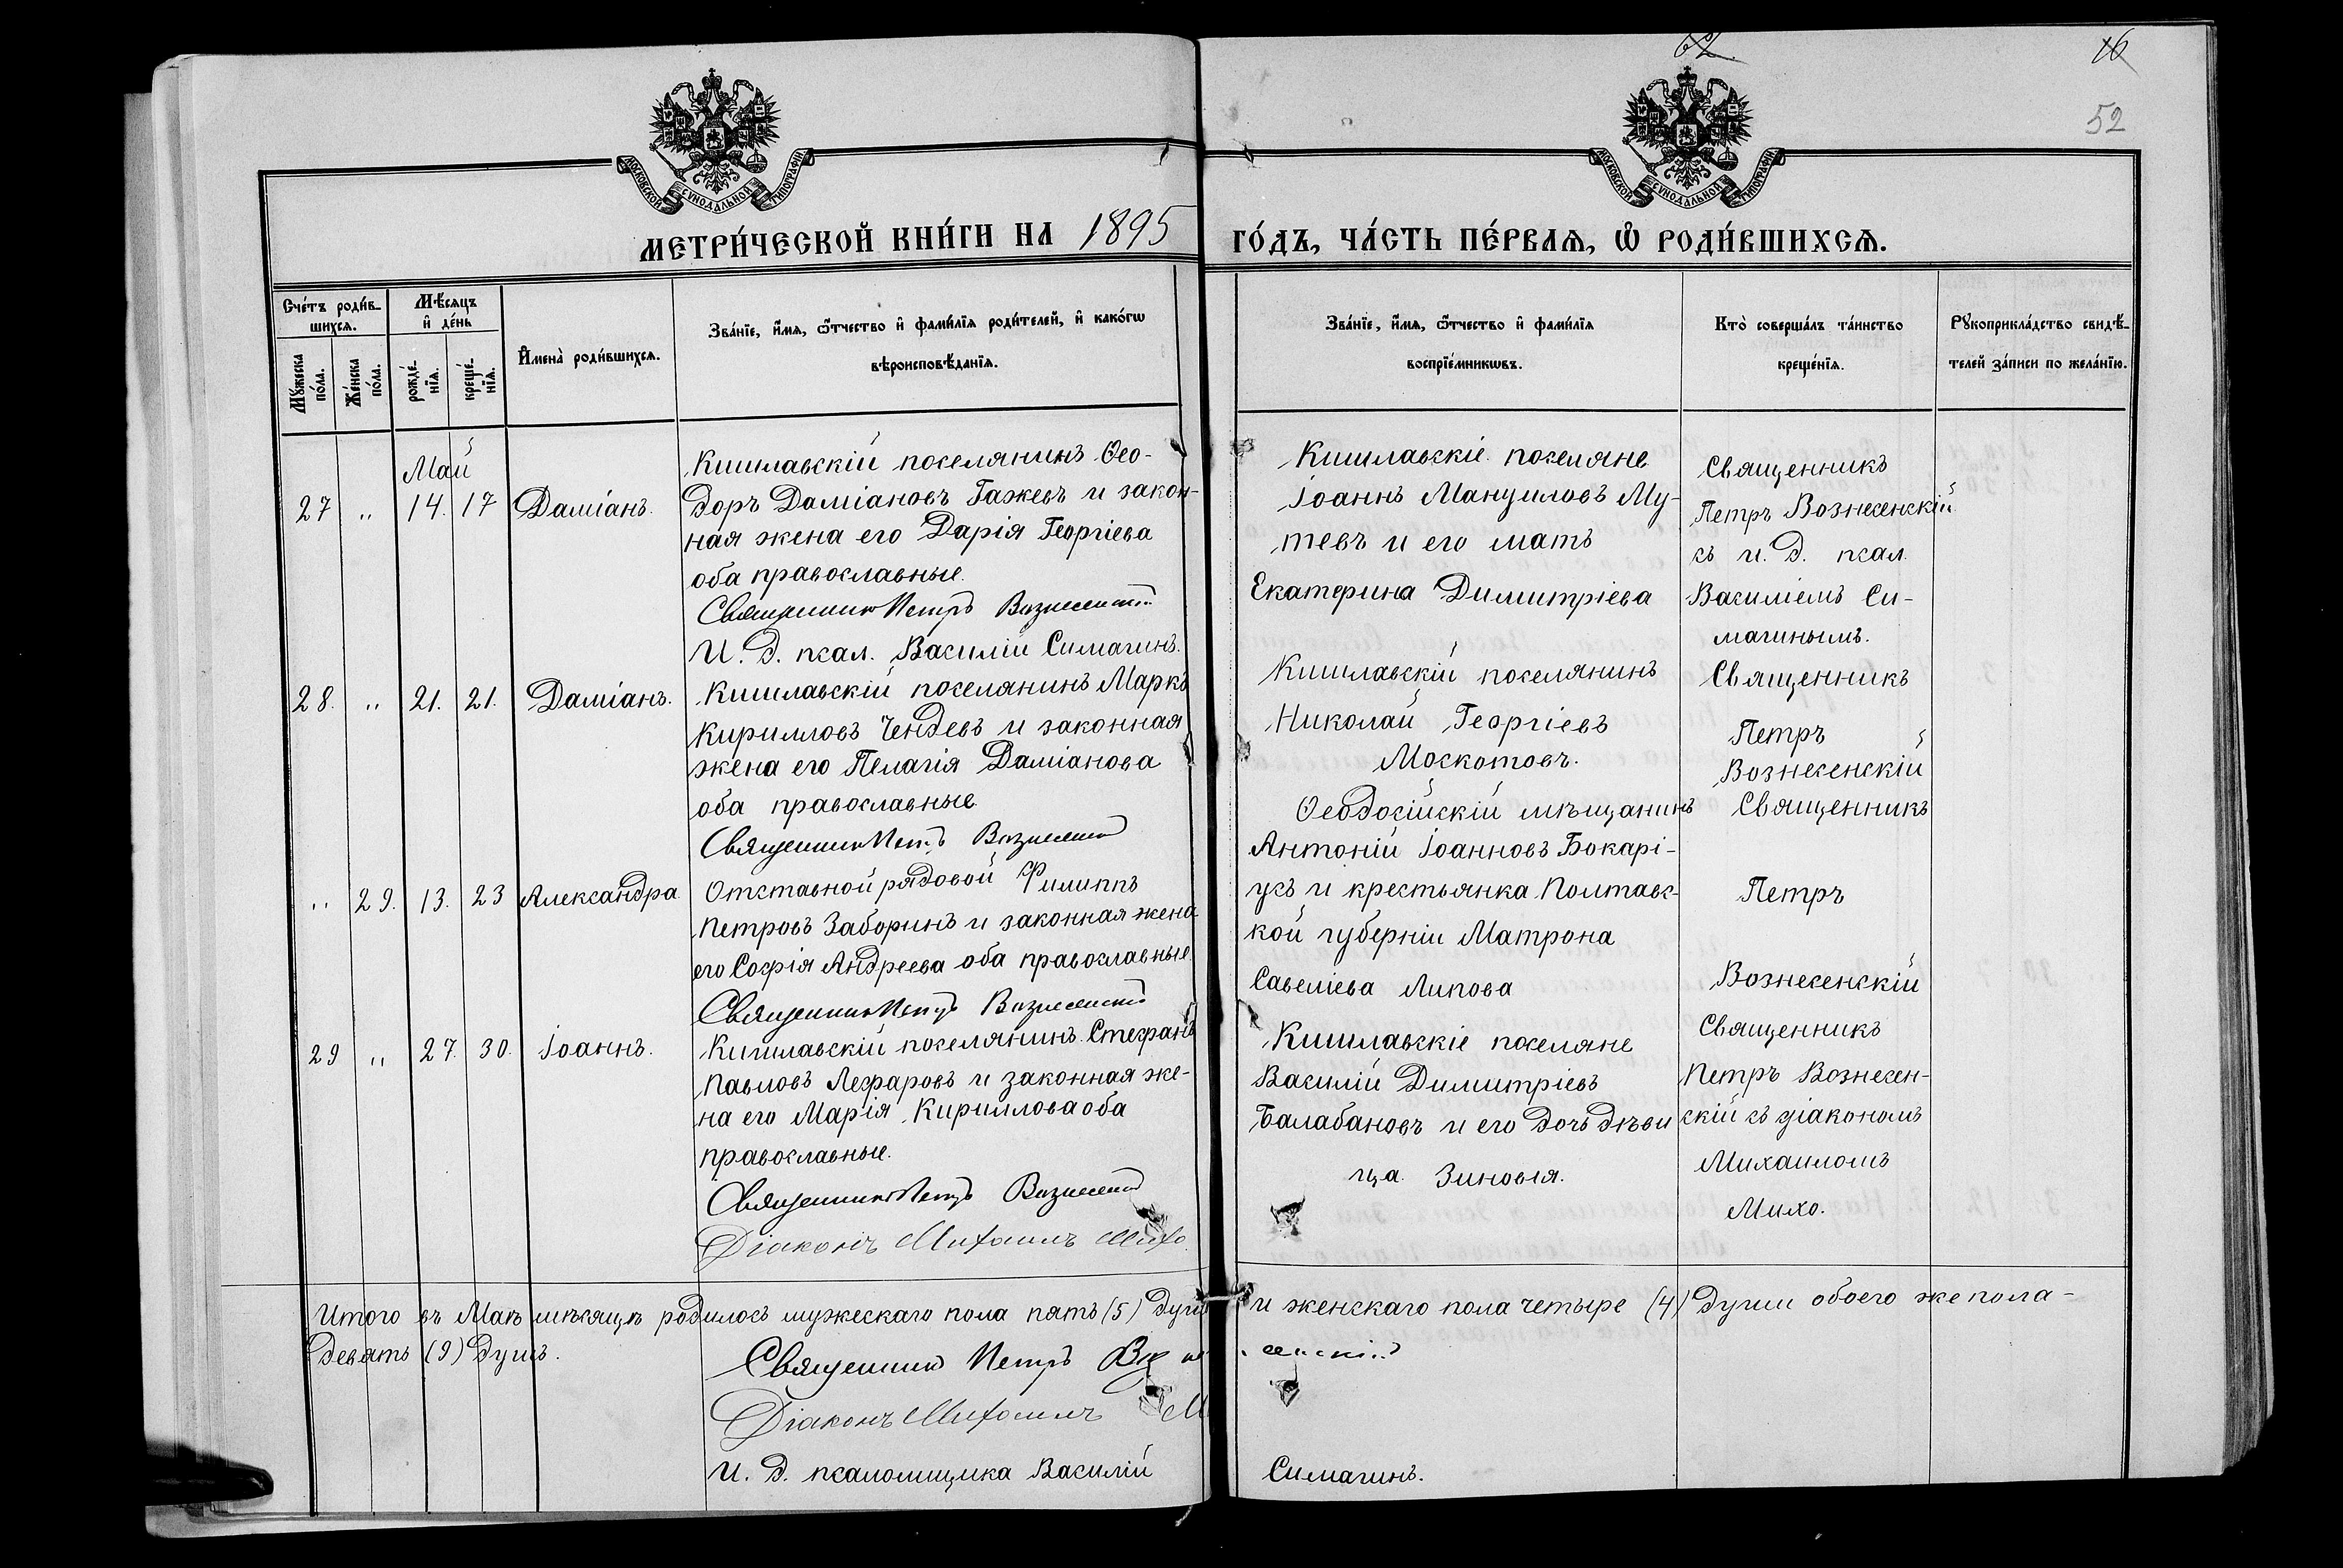 62
16
52
МОСКОВСКОЙ СѴНОДАЛЬНОЙ ТИПОГРАФІИ
МОСКОВСКОЙ СѴНОДАЛЬНОЙ ТИПОГРАФІИ
МЕТРИ́ЧЕСКОЙ КНИ́ГИ НА 1895
ГО́ДЪ, ЧА́СТЬ ПЕ́РВАѦ, Ѡ҆ РОДИ́ВШИХСѦ.
Сче́тъ роди́в-
шихсѧ.
Мꙋ́жеска по́ла.
Же́нска по́ла.
Мѣ́сѧцъ
и҆ де́нь
рожде́-
нїѧ.
креще́-
нїѧ.
И҆мена̀ роди́вшихсѧ.
Зва́нїе, и҆́мѧ, ѻ҆́тчество и҆ фами́лїѧ роди́телей, и҆ како́гѡ
вѣроисповѣ́данїѧ.
Зва́нїе, и҆́мѧ, ѻ҆́тчество и҆ фами́лїѧ
воспрїе́мникѡвъ.
Кто̀ соверша́лъ та́инство
креще́нїѧ.
Рꙋкоприкла́дство свидѣ́-
телей за́писи по жела́нїю.
Май
27 „ 14. 17 Даміанъ.
Кишлавскій поселянинъ Ѳео-
доръ Даміановъ Гажевъ и закон-
ная жена его Дарія Георгіева
оба православные.
Священникъ Петръ Вознесенскій
И. д. псал. Василій Симагинъ.
Кишлавскіе поселяне
Іоаннъ Мануиловъ Му-
тевъ и его мать
Екатерина Димитріева
Священникъ
Петръ Вознесенскій
съ и. д. псал.
Василіемъ Си-
магинымъ.
28. „ 21. 21. Даміанъ.
Кишлавскій поселянинъ Маркъ
Кирилловъ Чендевъ и законная
жена его Пелагія Даміанова
оба православные.
Священникъ Петръ Вознесенскій
Кишлавскій поселянинъ
Николай Георгіевъ
Москотовъ.
Священникъ
Петръ
Вознесенскій
„ 29. 13. 23 Александра
Отставной рядовой Филиппъ
Петровъ Заборинъ и законная жена
его Софія Андреева оба православные.
Священникъ Петръ Вознесенскій
Ѳеодосійскій мѣщанинъ
Антоній Іоанновъ Бокарі-
усъ и крестьянка Полтавс-
кой губерніи Матрона
Савеліева Липова
Священникъ
Петръ
Вознесенскій
29 „ 27. 30. Іоаннъ.
Кишлавскій поселянинъ Стефанъ
Павловъ Лефаровъ и законная же-
на его Марія Кириллова оба
православные.
Священникъ Петръ Вознесенскій
Діаконъ Михаилъ Михо.
Кишлавскіе поселяне
Василій Димитріевъ
Балабановъ и его дочь дѣви
ца Зиновія.
Священникъ
Петръ Вознесен-
скій съ діакономъ
Михаиломъ
Михо.
Итого въ Маѣ мѣсяцѣ родилось мужескаго пола пять (5) душъ и женскаго пола четыре (4) души обоего же пола-
девять (9) душъ.
Священникъ Петръ Вознесенскій
Діаконъ Михаилъ М
И. д. псаломщика Василій Симагинъ.